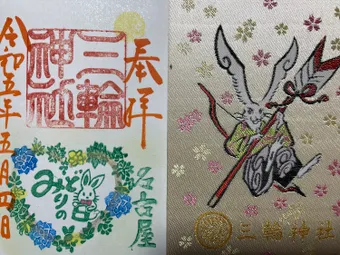 奉拝
三輪
神社
令和五年五月四日
みどりの
名古屋
三輪神社